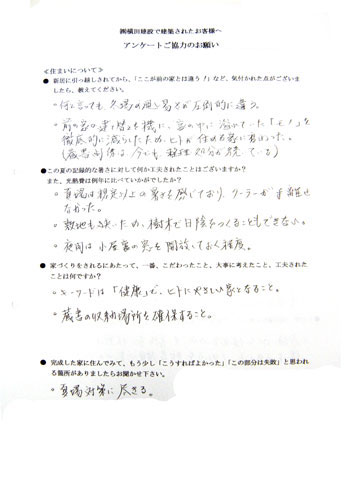 ㈱横田建設で建築されたお客様へ
アンケートご協力のお願い
≪住まいについて≫
● 新居に引っ越しされてから、「ここが前の家とは違う!」など、気付かれた点がございま
したら、教えてください。
。何と言っても冬場の
が圧倒的に違う。
。前の家の建て替えを機に、家の中に溢れていた「モノ」を
徹底的に減らしたため、ヒトが住める家になった。
(蔵書 は今でも 処分が続いている)
●この夏の記録的な暑さに対して何か工夫されたことはございますか?
また、光熱費は例年に比べていかがでしたか?
。夏場は想定以上の暑さを感じており、クーラーが手放せ
なかった。
。敷地も狭いため、樹木で日陰をつくることもできない。
。夜間は小屋裏の窓を開放しておく程度。
● 家づくりをされるにあたって、一番、こだわったこと、大事に考えたこと、工夫された
ことは何ですか?
。キーワードは「健康」で、ヒトにやさしい家となること。
。蔵書の収納場所を確保すること。
● 完成した家に住んでみて、もう少し「こうすればよかった」「この部分は失敗」と思われ
る箇所がありましたらお聞かせ下さい。
。夏場対策に尽きる。